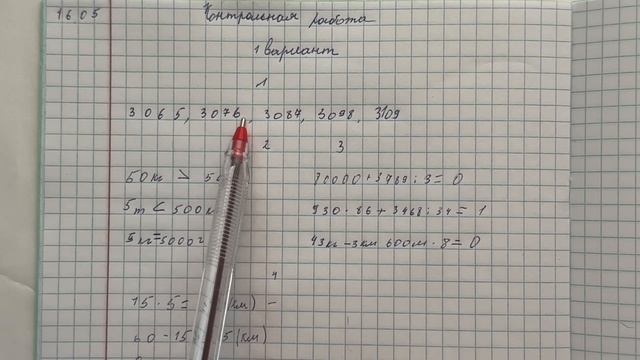 1605
Контральная работа
1 вариант
1
3065, 3076, 3087, 3098, 3109
2 3
50кг > 50
5т < 500к
5кг=5000г
930·86+3468:34=1
43кг-3км 600м·8=0
4
15·5= (км) -
60-15 5(км)